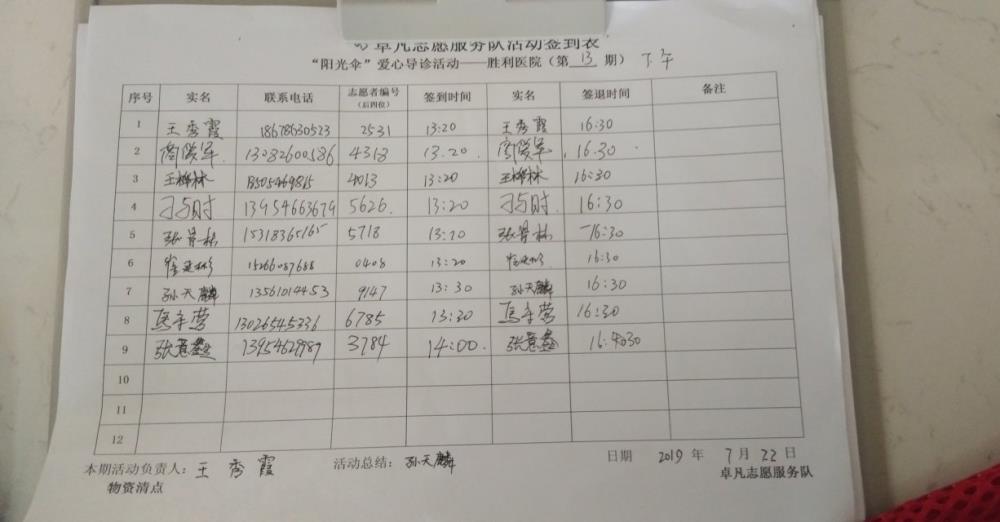 卓凡志愿服务队活动签到表
“阳光伞”爱心导诊活动——胜利医院（第 13 期） 下午
序号 实名 联系电话 志愿者编号（后四位） 签到时间 实名 签退时间 备注
1 王秀霞 18678630523 2531 13:20 王秀霞 16:30
2 13082600586 4318 13.20. 16.30
3 王 林 4013 13:20 王 林 16:30
4 13954663679 5626. 13:20 16:30
5 张 林 15318365165 5718 13:20 张 林 16:30
6 15266087688 0408 13:20 16:30
7 孙天麟 13561014453 9147 13:30 孙天麟 16:30
8 13026545336 6785 13:30 16:30
9 张 3784 14:00. 张
10
11
12
本期活动负责人：王秀霞 活动总结：孙天麟 日期 2019 年 7 月 22 日
物资清点 卓凡志愿服务队